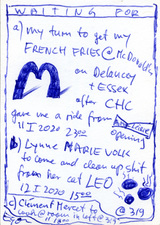 WAITING FOR
a) my turn to get my
FRENCH FRIES @ McDonalds
M
on Delancey
+ ESSEX
after CHC
gave me a ride from
11 I 2020 2300
opening
b) LYNNE MARIE VOLK
to come and clean up shit
from her cat LEO
12 I 2020 1500
c) Clement Mercet to
@ 319